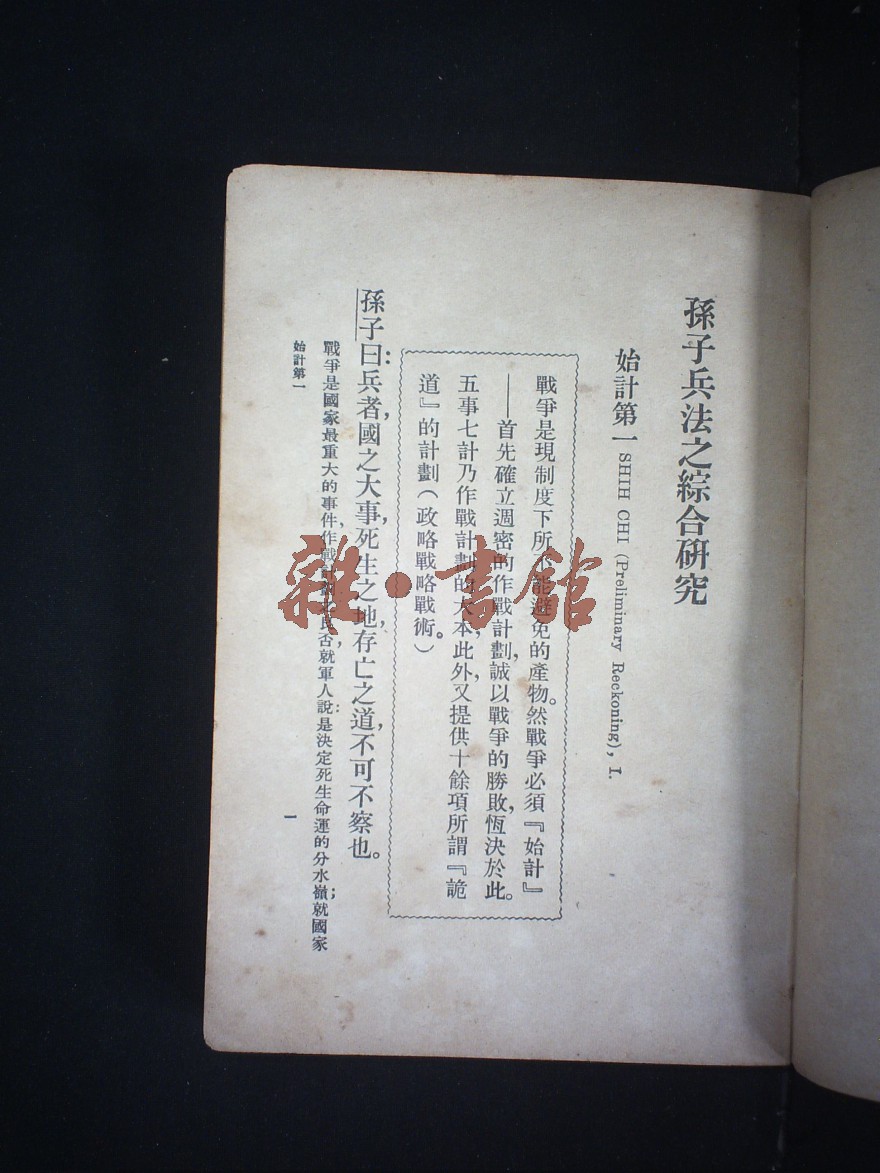 孫子兵法之綜合研究
始計第一 SHIH CHI (Preliminary Reckoning), I.
戰爭是現制度下所不能避免的產物。然戰爭必須『始計』
——首先確立週密的作戰計劃,誠以戰爭的勝敗,恆決於此。
五事七計乃作戰計劃的大本,此外,又提供十餘項所謂『詭
道』的計劃(政略戰略戰術。)
孫子曰:兵者,國之大事,死生之地,存亡之道,不可不察也。
戰爭是國家最重大的事件,作戰計劃之良否,就軍人說:是決定死生命運的分水嶺;就國家
始計第一
一
雜·書館